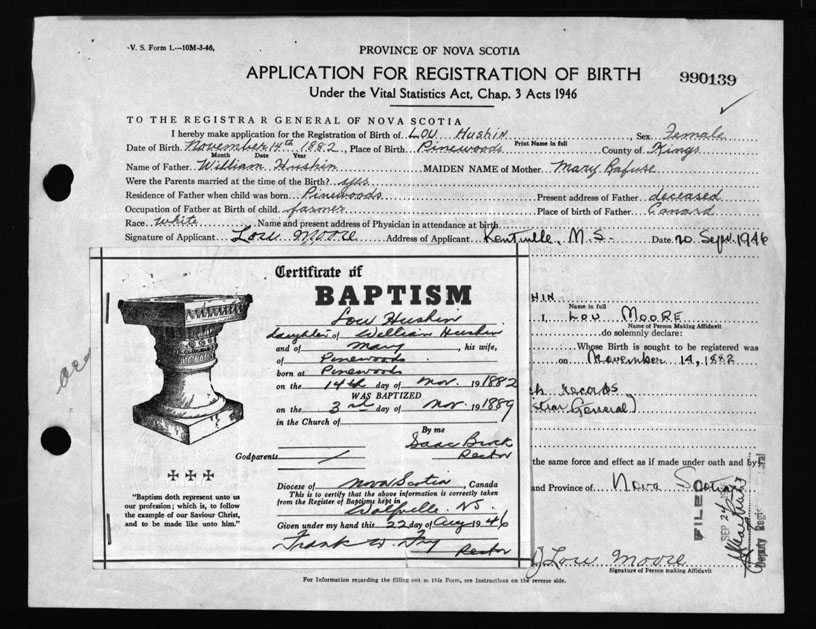 V. S. Form 1.—10M-3-46,
PROVINCE OF NOVA SCOTIA
APPLICATION FOR REGISTRATION OF BIRTH
990139
Under the Vital Statistics Act, Chap. 3 Acts 1946
TO THE REGISTRAR GENERAL OF NOVA SCOTIA
I hereby make application for the Registration of Birth of LOU Hushin, Sex Female
Print Name in full
Date of Birth November 14th 1882, Place of Birth Pinewoods County of Kings
Month Date Year
Name of Father William Hushin MAIDEN NAME of Mother Mary Rafuse
Were the Parents married at the time of the Birth? yes
Residence of Father when child was born Pinewoods Present address of Father deceased
Occupation of Father at Birth of child farmer Place of birth of Father Canard
Race white Name and present address of Physician in attendance at birth
Signature of Applicant Lou Moore Address of Applicant Kentville, N.S. Date 20 Sept 1946
Certificate of
BAPTISM
Lou Hushin
daughter of William Hushin
and of Mary, his wife,
of Pinewoods
born at Pinewoods
on the 14th day of Nov. 19 1882
WAS BAPTIZED
on the 3rd day of Nov. 19 1889
in the Church of
By me
Isaac Brock
Rector
Godparents
Diocese of Nova Scotia, Canada
This is to certify that the above information is correctly taken
from the Register of Baptisms kept in
Wolfville N.S.
Given under my hand this 22 day of Aug 1946
Frank W. Rector
"Baptism doth represent unto us
our profession; which is, to follow
the example of our Saviour Christ,
and to be made like unto him."
HIN
Name in full
I, LOU MOORE
Name of Person Making Affidavit
do solemnly declare:
Whose Birth is sought to be registered was
on November 14, 1882
ch records
strar General)
the same force and effect as if made under oath and by
and Province of Nova Scotia
FILED
SEP 24
Deputy Regis
Lou Moore
Signature of Person making Affidavit
For Information regarding the filling out of this Form, see Instructions on the reverse side.